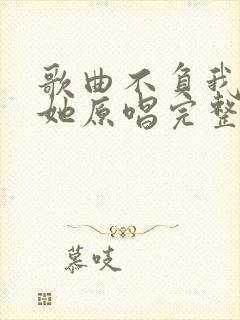 歌曲不负我
她原唱完整
慕吱